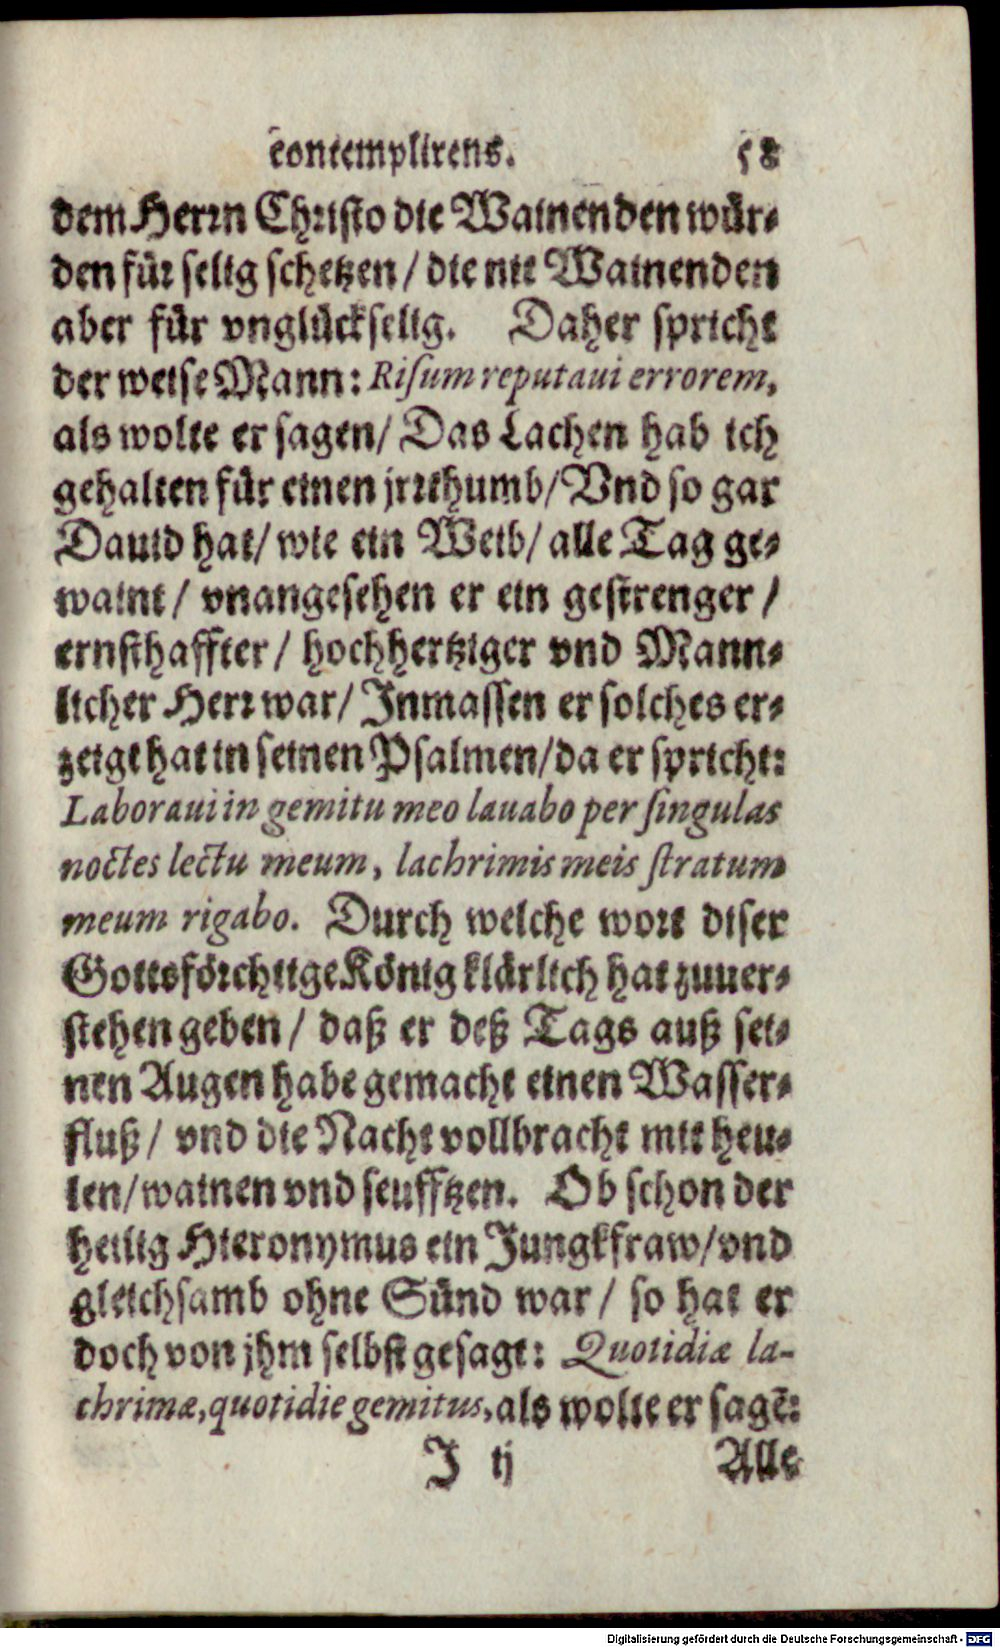 contemplirens. 58
dem Herrn Christo die Wainenden wür-
den für selig schetzen/ die nit Wainenden
aber für vnglückselig. Daher spricht
der weise Mann: Risum reputaui errorem,
als wolte er sagen/ Das Lachen hab ich
gehalten für einen jrrthumb/ Vnd so gar
Dauid hat/ wie ein Weib/ alle Tag ge-
waint/ vnangesehen er ein gestrenger/
ernsthaffter/ hochhertziger vnd Mann-
licher Herr war/ Inmassen er solches er-
zeigt hat in seinen Psalmen/ da er spricht:
Laboraui in gemitu meo lauabo per singulas
noctes lectu meum, lachrimis meis stratum
meum rigabo. Durch welche wort diser
Gottsförchtige König klärlich hat zuuer-
stehen geben/ daß er deß Tags auß sei-
nen Augen habe gemacht einen Wasser-
fluß/ vnd die Nacht vollbracht mit heu-
len/ wainen vnd seufftzen. Ob schon der
heilig Hieronymus ein Jungkfraw/ vnd
gleichsamb ohne Sünd war/ so hat er
doch von jhm selbst gesagt: Quotidiæ la-
chrimæ, quotidie gemitus, als wolte er sagē:
J ij Alle
Digitalisierung gefördert durch die Deutsche Forschungsgemeinschaft - DFG